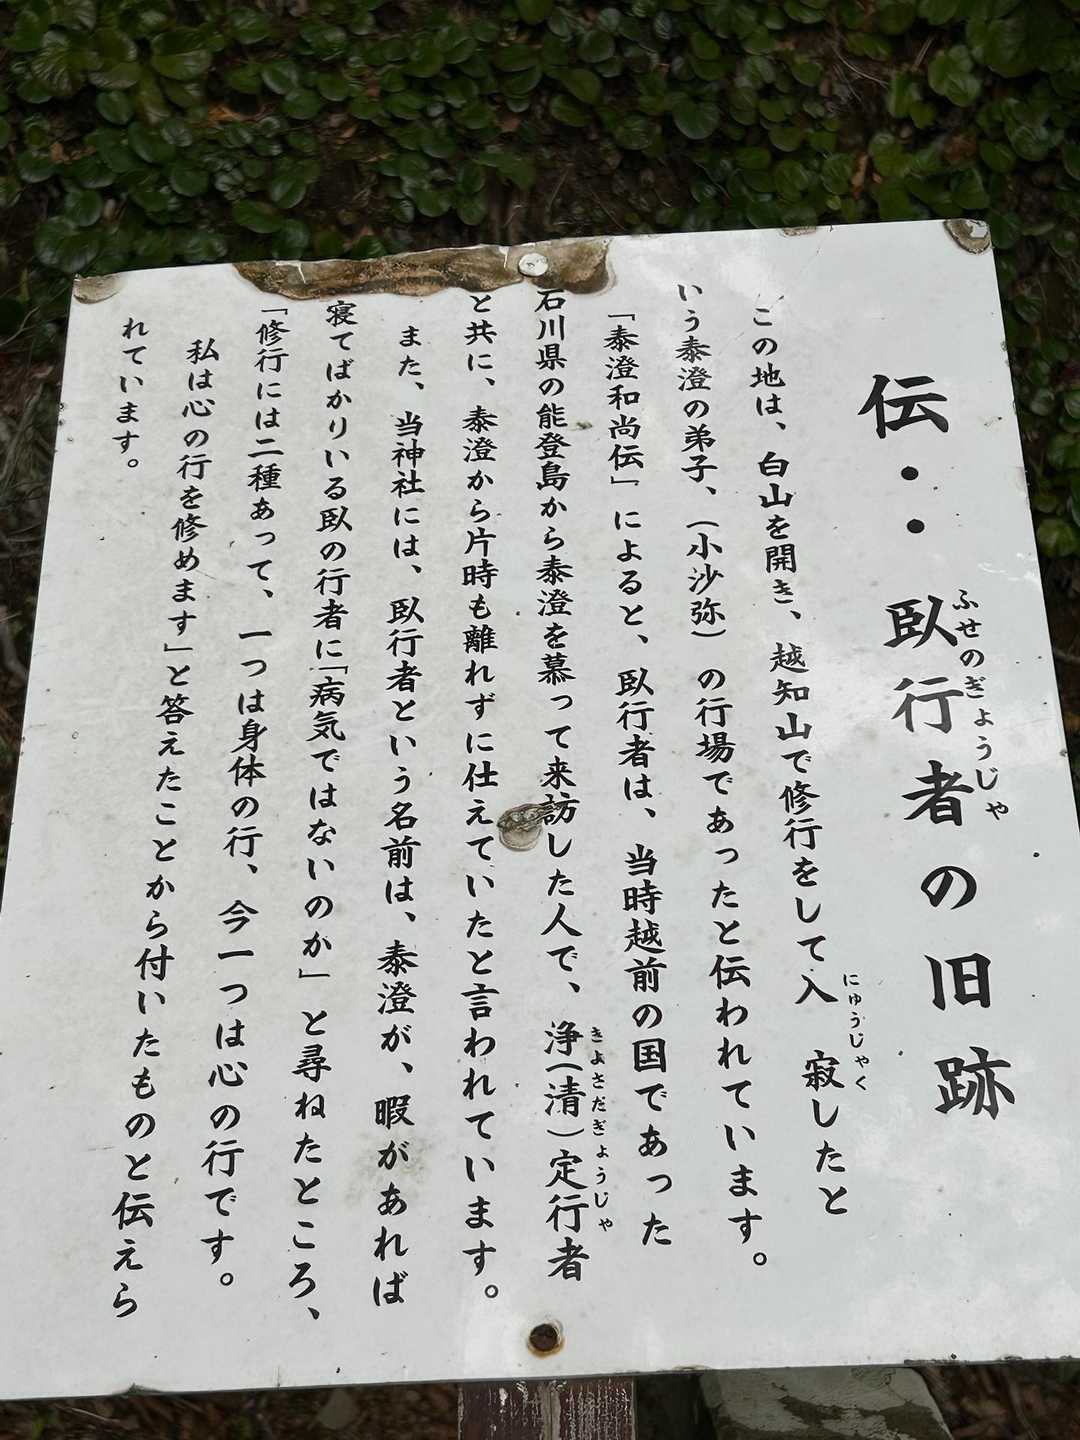 伝・・臥行者の旧跡
ふせのぎょうじゃ
この地は、白山を開き、越知山で修行をして入 寂したと
にゅうじゃく
いう泰澄の弟子、（小沙弥）の行場であったと伝われています。
「泰澄和尚伝」によると、臥行者は、当時越前の国であった
石川県の能登島から泰澄を慕って来訪した人で、浄（清）定行者
きよさだぎょうじゃ
と共に、泰澄から片時も離れずに仕えていたと言われています。
また、当神社には、臥行者という名前は、泰澄が、暇があれば
寝てばかりいる臥の行者に「病気ではないのか」と尋ねたところ、
「修行には二種あって、一つは身体の行、今一つは心の行です。
私は心の行を修めます」と答えたことから付いたものと伝えら
れています。